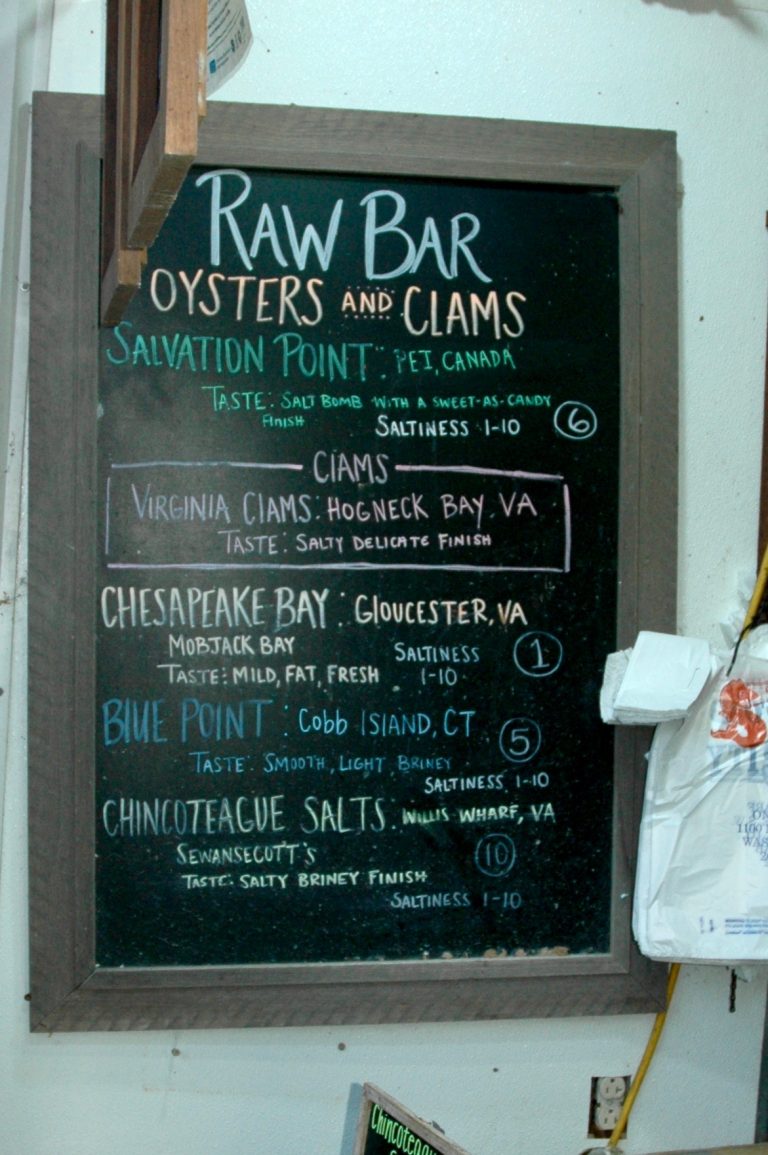 RAW BAR
OYSTERS AND CLAMS
SALVATION POINT: PEI, CANADA
TASTE: SALT BOMB WITH A SWEET-AS-CANDY
FINISH
SALTINESS 1-10 6
CLAMS
VIRGINIA CLAMS: HOGNECK BAY, VA
TASTE: SALTY DELICATE FINISH
CHESAPEAKE BAY: GLOUCESTER, VA
MOBJACK BAY
SALTINESS 1
TASTE: MILD, FAT, FRESH 1-10
BLUE POINT: Cobb ISLAND, CT
5
TASTE: SMOOTH, LIGHT BRINEY
SALTINESS 1-10
CHINCOTEAGUE SALTS: WILLIS WHARF, VA
SEWANSECOTT'S 10
TASTE: SALTY BRINEY FINISH
SALTINESS 1-10
ON
1100
WAS
Chincoteague